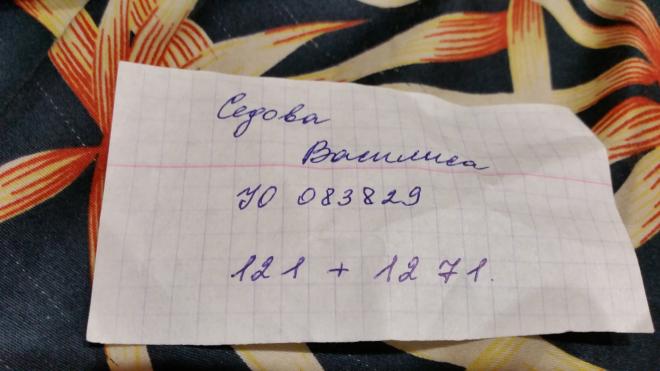 Седова
Василиса
УО 083829
121 + 1271.